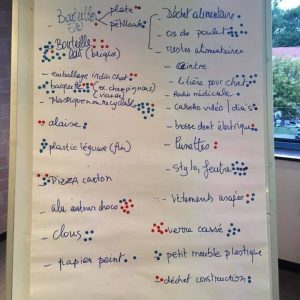 Bouteilles eau
plate
pétillante
Bouteille lait (brique)
- emballage indiv. chat
- barquette (ex. champignons) (viande)
- plastique non recyclable
- alaise
- plastic légume (fin)
- Pizza carton
- alu autour choco
- Clous
- papier peint
- déchet alimentaire
- os de poulet
- restes alimentaires
- litière pour chat
- médicale
- cassette vidéo / dia's
- brosse dent électrique
- Lunettes
- stylo, feutre
- Vêtements usagés
- verre cassé
- petit meuble plastique
- déchet construction